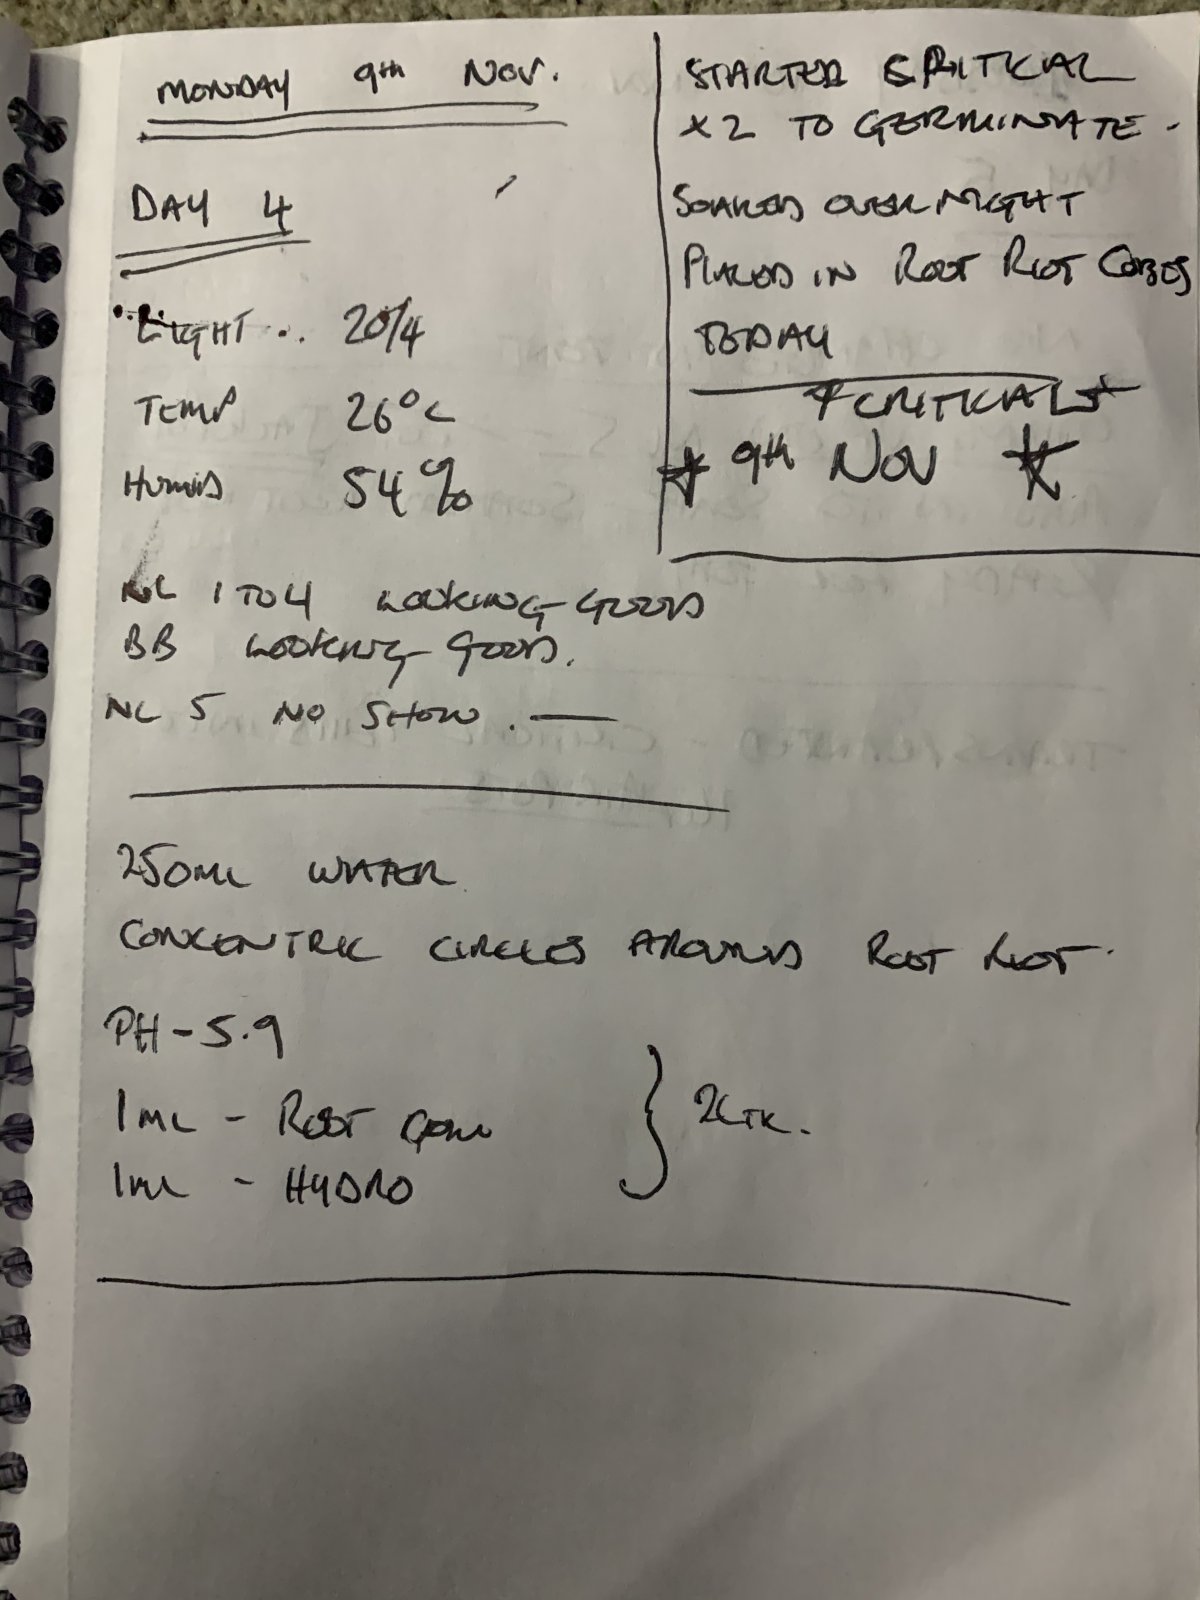 MONDAY 9th NOV.
DAY 4
LIGHT .. 20/4
TEMP 26°C
HUMID 54%
NL 1 TO 4 LOOKING GOOD
BB LOOKING GOOD.
NL 5 NO SHOW. —
STARTED CRITICAL
x 2 TO GERMINATE.
SOAKED OVERNIGHT
PLACED IN ROOT RIOT CUBES
TODAY
* CRITICALS *
* 9th NOV *
250ML WATER
CONCENTRIC CIRCLES AROUND ROOT RIOT.
PH - 5.9
1ML - ROOT
1ML - HYDRO
} 2LTR.